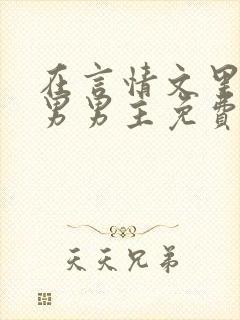 在言情文里
男男主免费
天天兄弟